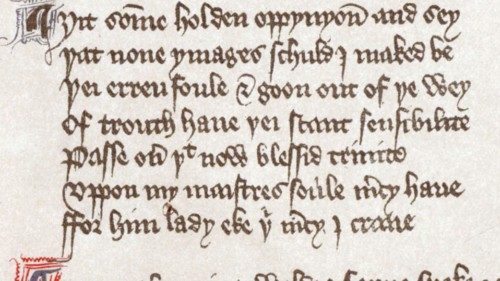 Ȝit som̄e holden oppynyon̄ and sey
Þat none ymages schuld I maked be
Þei erren foule & goon out of þe wey
Of trouth haue þei scant sensibilite
Passe ou̾ þᵗ now blessid trinite
Vppon my maistres soule m̾cy haue
ffor him lady eke þⁱ m̾cy I craue